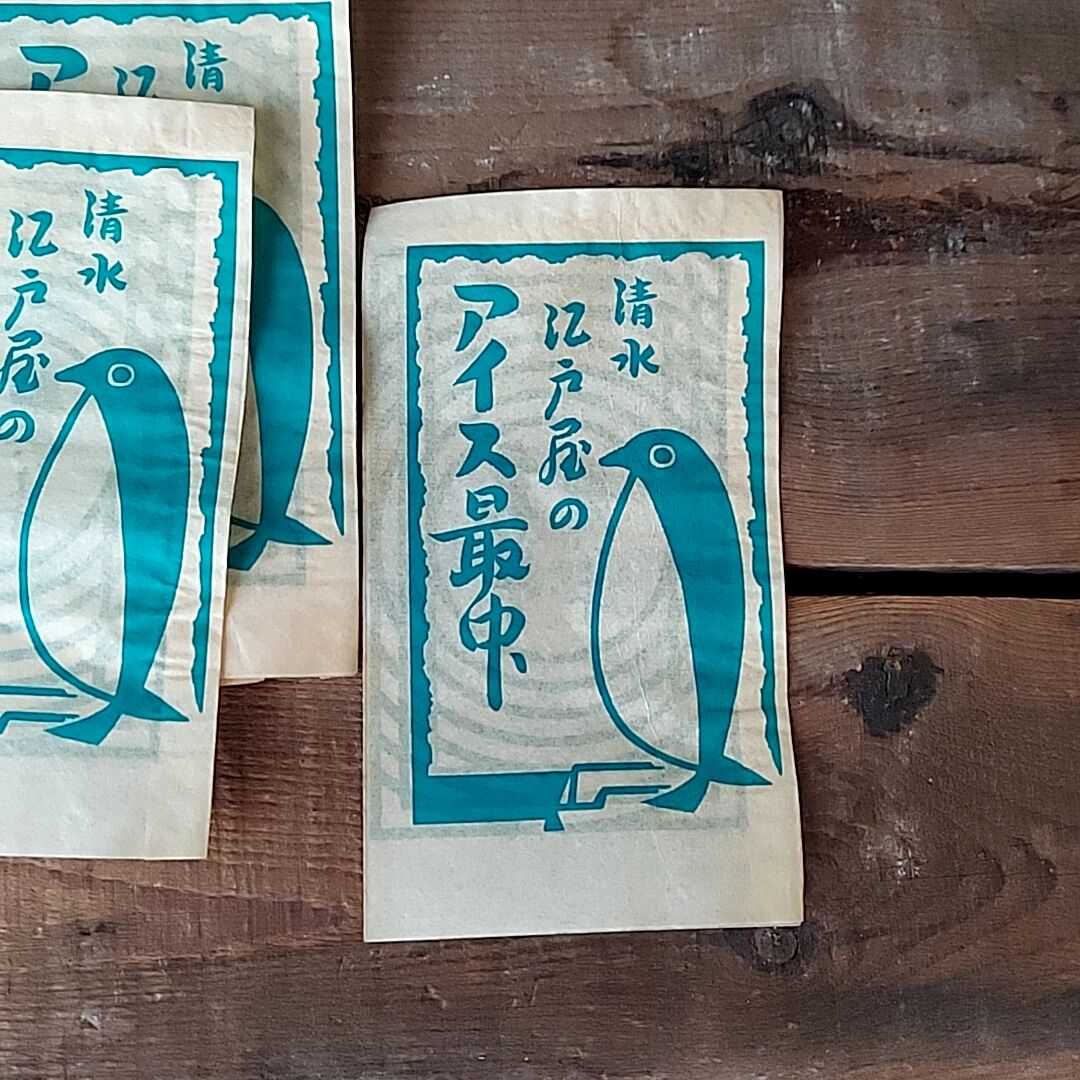 清水
江戸屋の
アイス最中
清水
江戸屋の
清水
江
ア